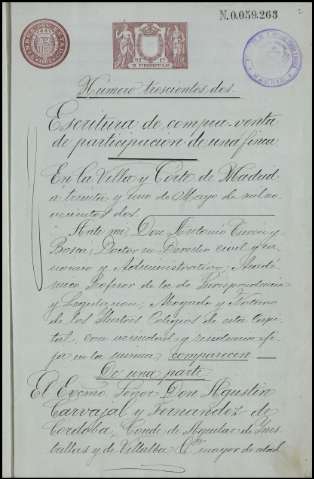 N.0.059.263
Número trescientos dos.
Escritura de compra-venta
de participación de una finca
En la Villa y Corte de Madrid
a treinta y uno de Mayo de mil no-
vecientos dos.
Ante mi Don Antonio Turón y
Bosca, Doctor en Derecho civil y ca-
nonico y Administrativo, Acadé-
mico Profesor de la de Jurisprudencia
y Legislación, Abogado y Notario
de los Ilustres Colegios de esta Capi-
tal, con vecindad y residencia fi-
ja en la misma comparecen
De una parte
El Excmo. Señor Don Agustín
Carvajal y Fernandez de
Cordoba, Conde de Aguilar de Ines-
trillas y de Villalba, mayor de edad